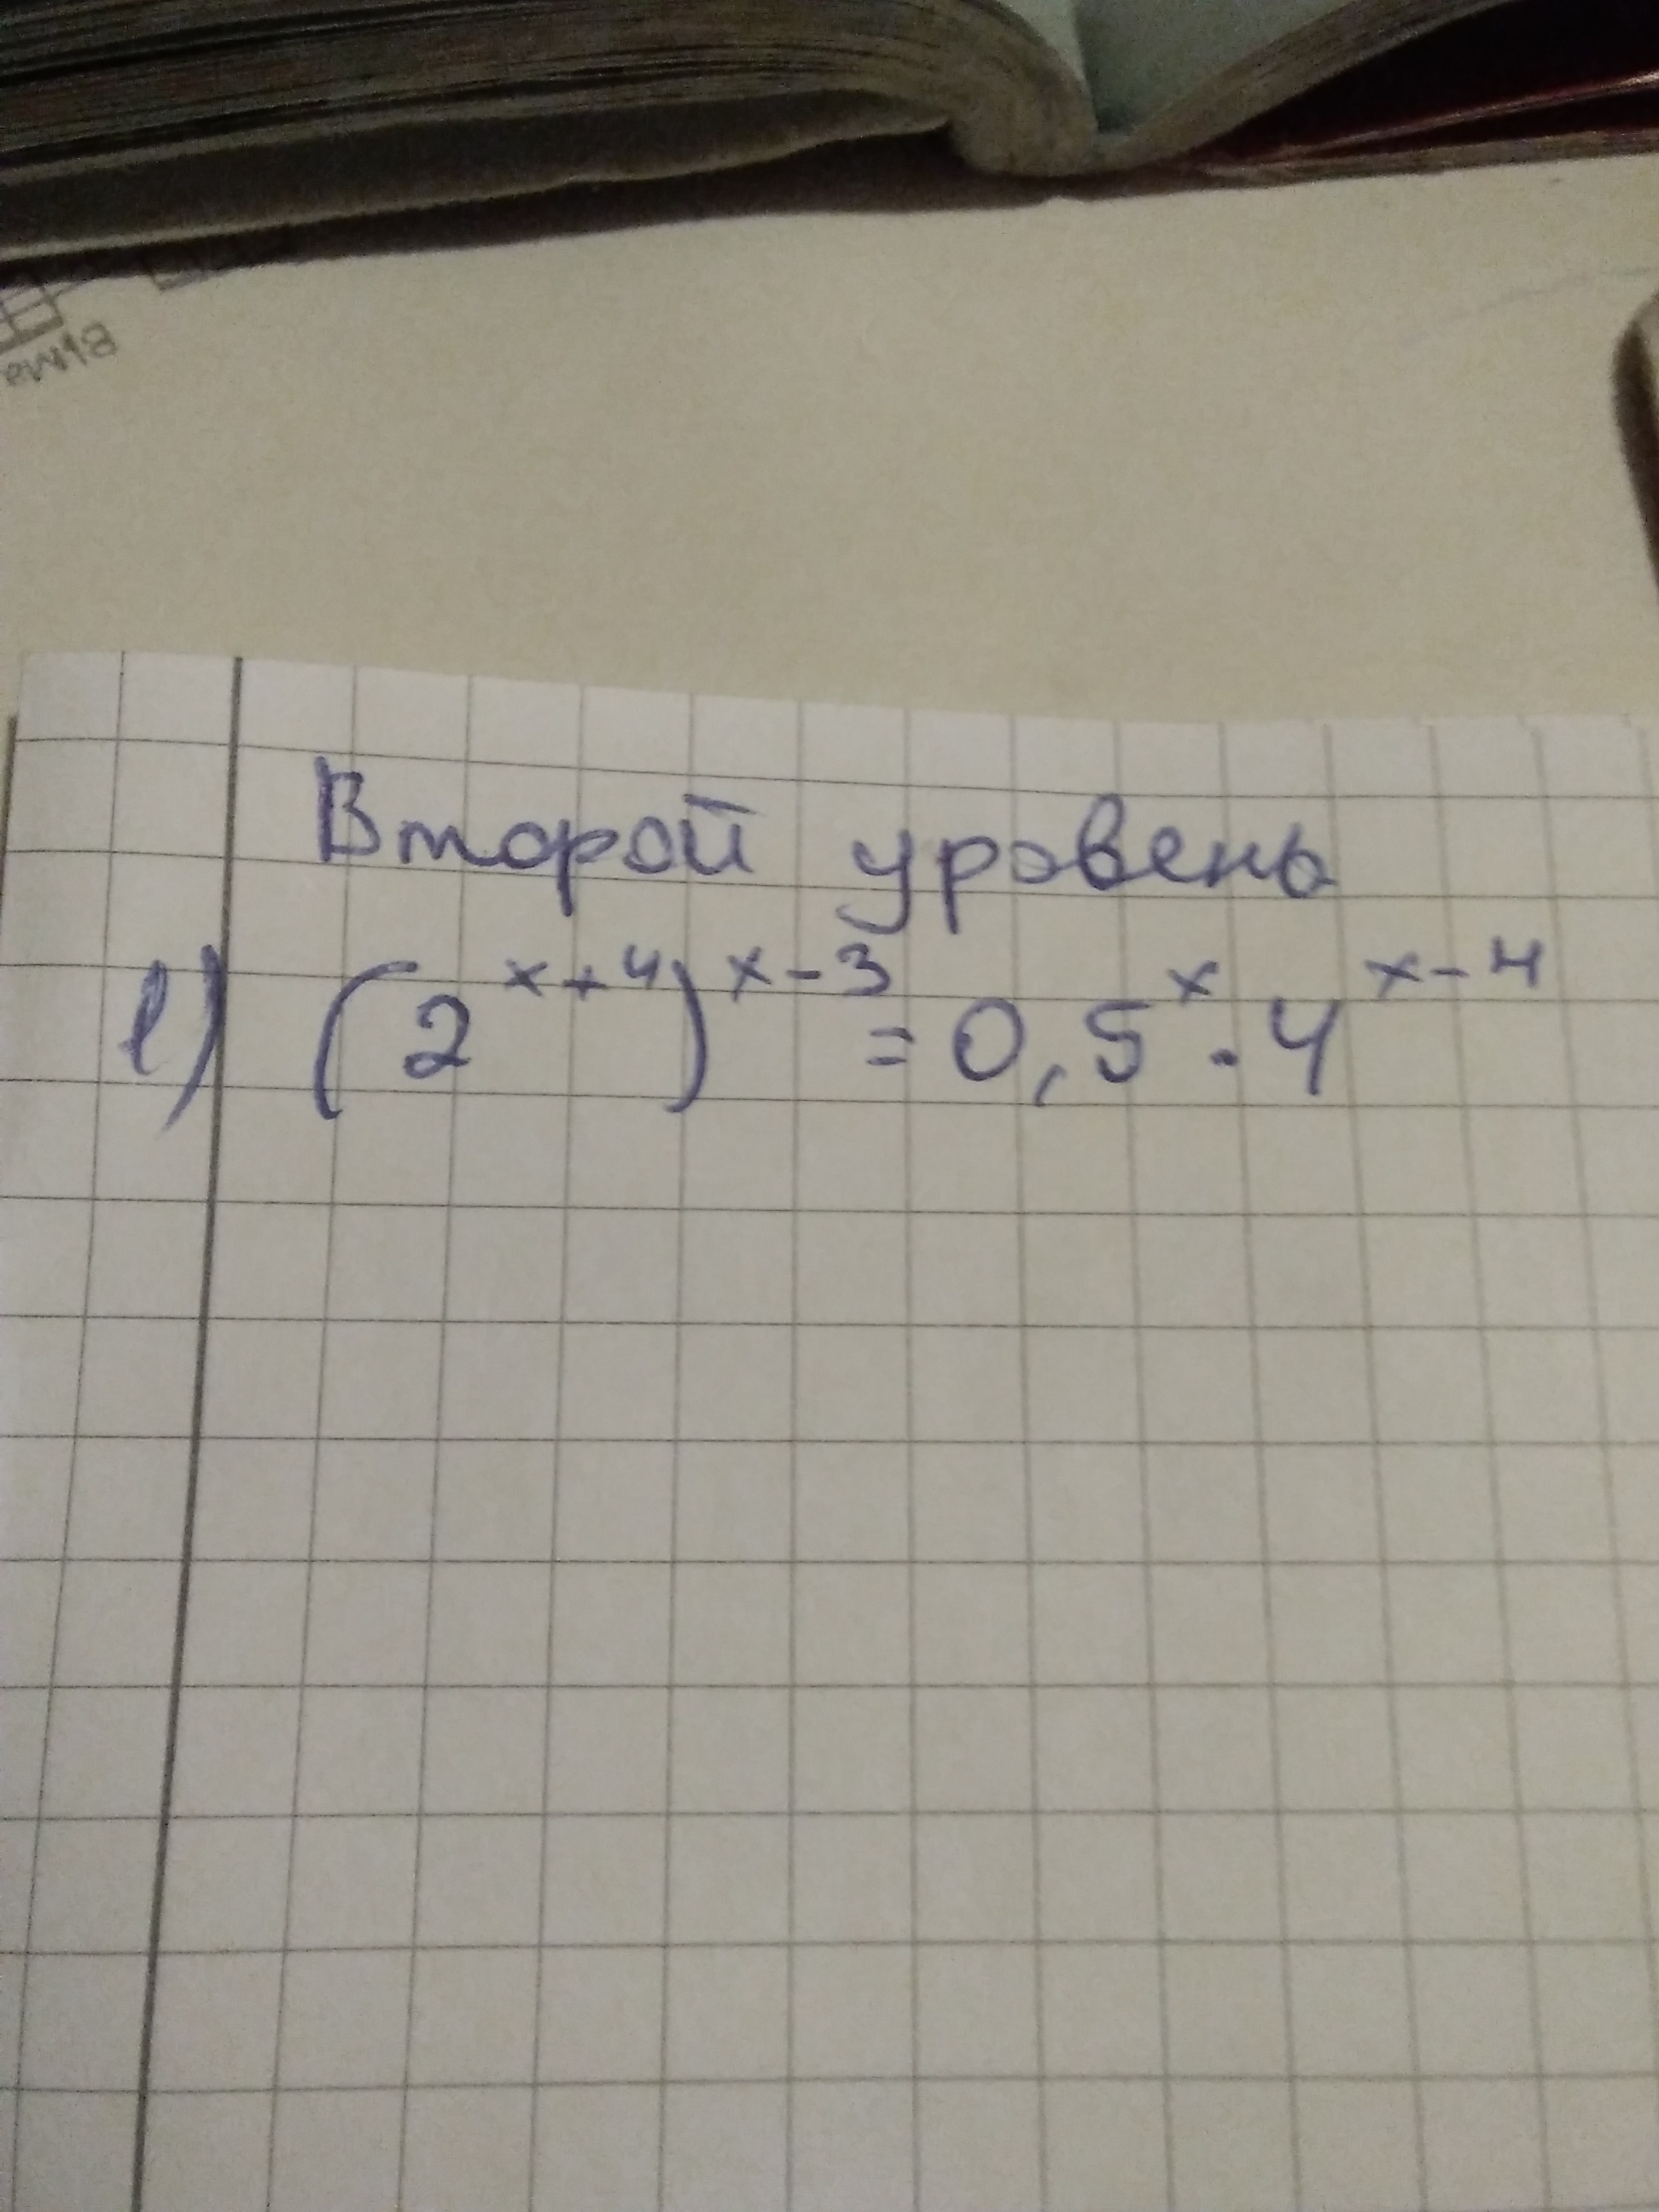 Второй уровень
е) (2^{x+4})^{x-3} = 0,5^x · 4^{x-4}